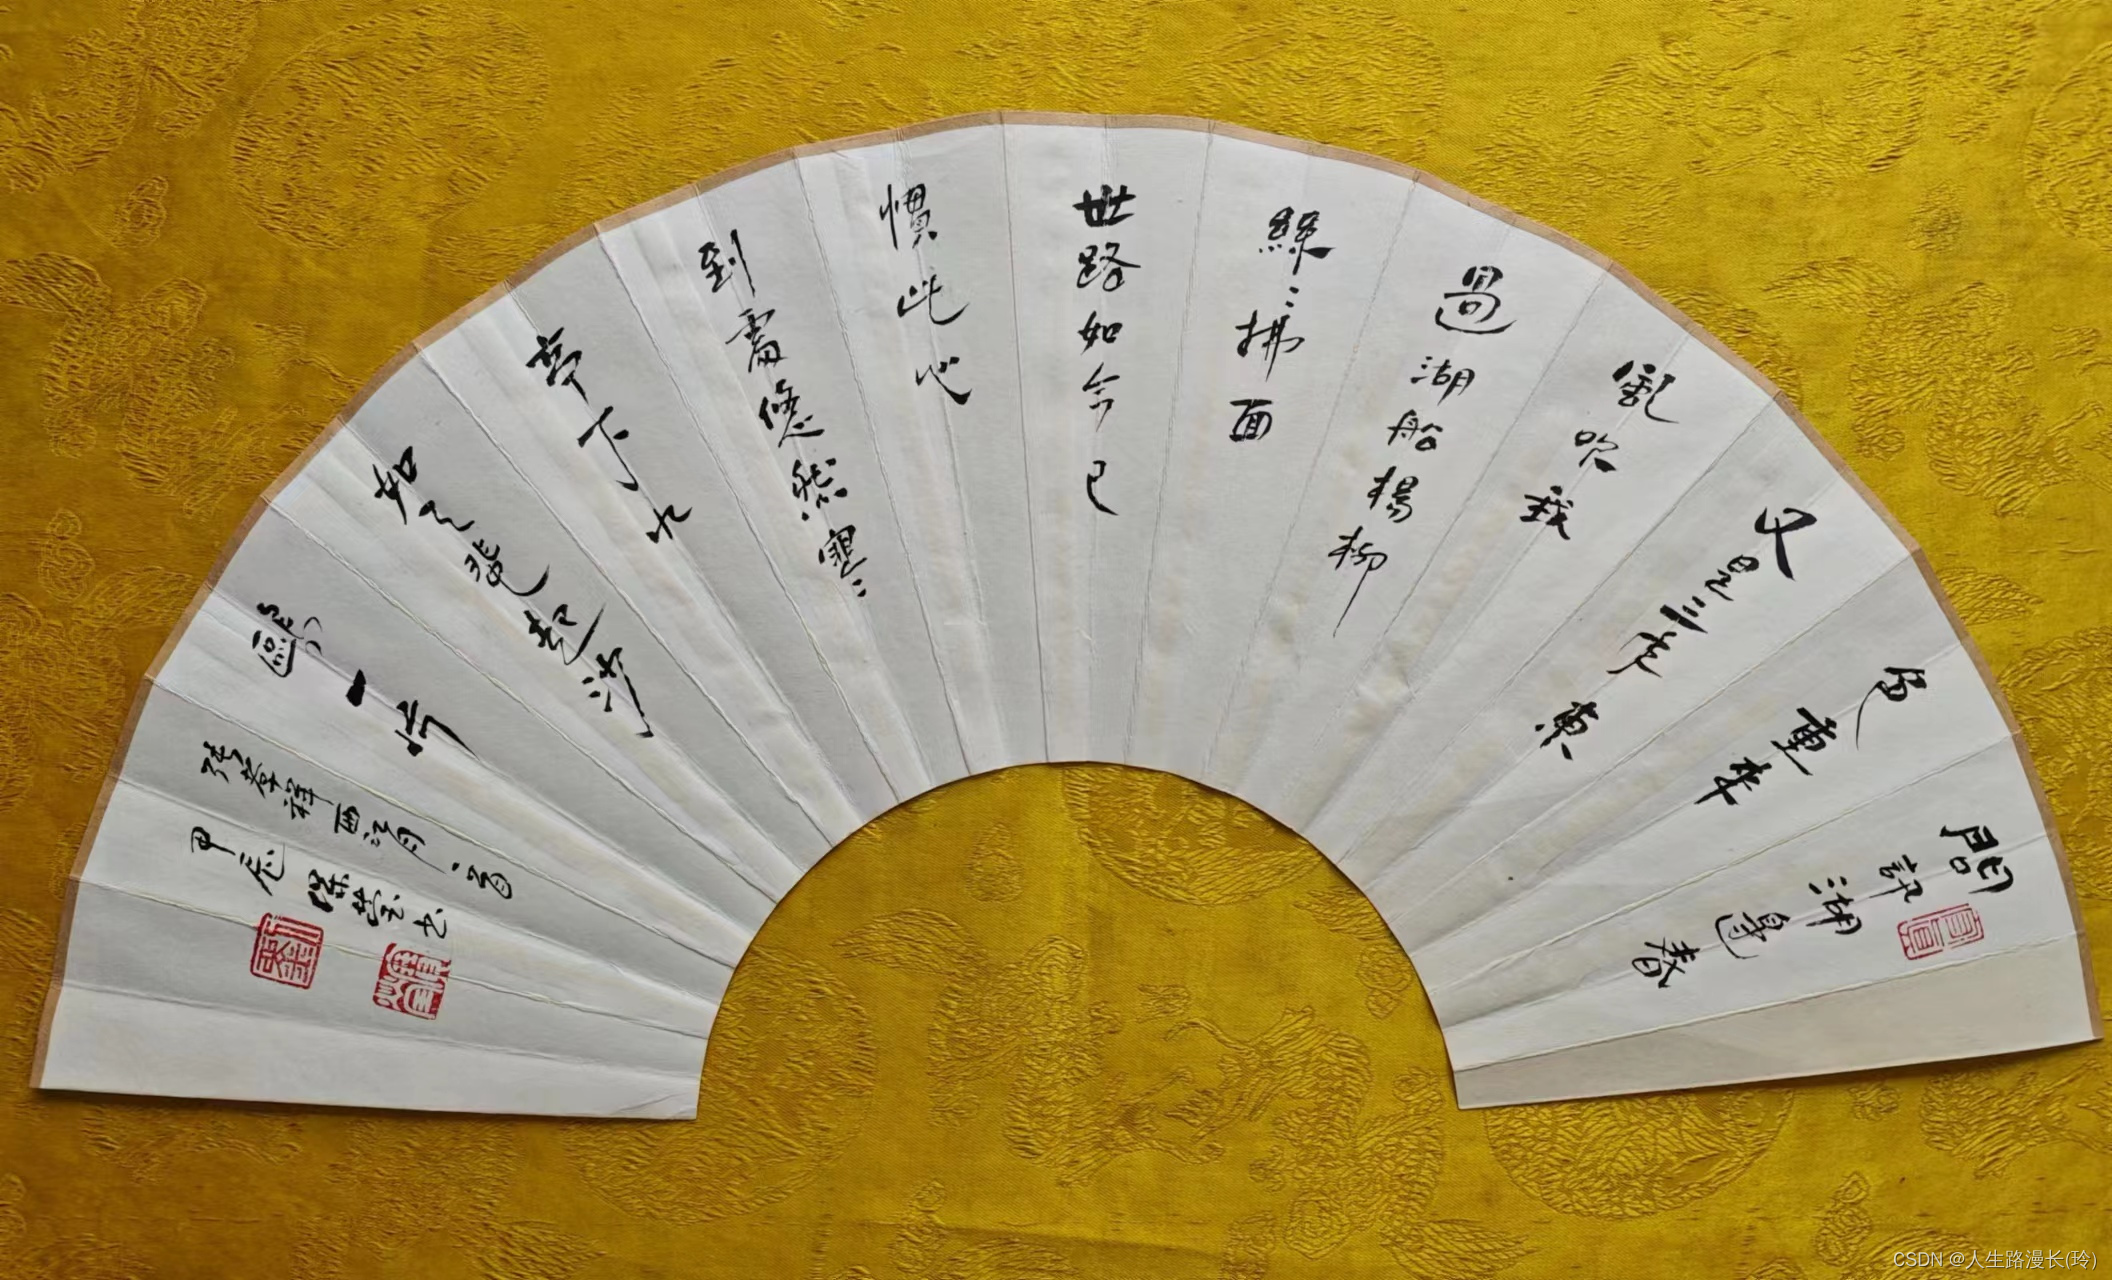 問訊湖邊春
色重来
又是三年東
風吹我
過湖船楊柳
絲〻拂面
世路如今已
慣此心
到處悠然寒
亭下水
如天飛起沙
鷗一片
張孝祥西江月
甲辰
CSDN @人生路漫长(玲)